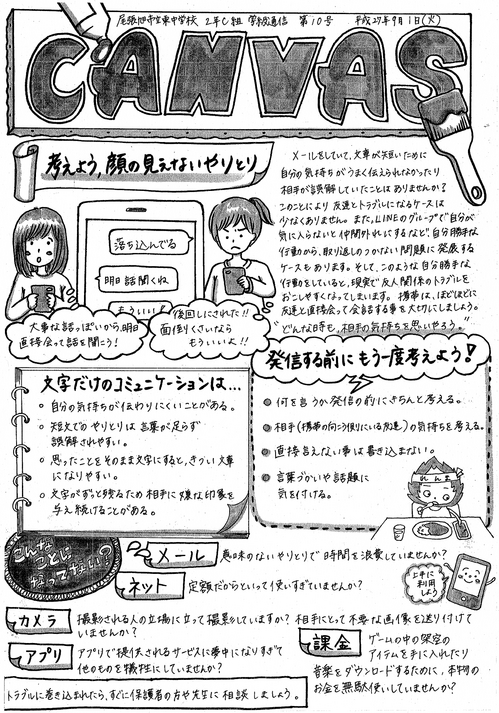 尾張旭市立東中学校 2年C組 学級通信 第10号 平成27年9月1日(火)
CANVAS
考えよう、顔の見えないやりとり
メールをしていて、文章が短いために
自分の気持ちがうまく伝えられなかったり
相手が誤解していたことはありませんか?
このことにより友達とトラブルになるケースは
少なくありません。また、LINEのグループで“自分が
気に入らないと仲間外れにするなど”、自分勝手な
行動から、取り返しのつかない問題に発展する
ケースもあります。そして、このような自分勝手な
行動をしていると、現実で友人関係のトラブルを
おこしやすくなってしまいます。携帯は、ほどほどに
友達と直接会って会話する事を大切にしましょう。
“どんな時も、相手の気持ちを思いやろう。”
落ち込んでる
明日話聞くね
もういい!!
大事な話っぽいから、明日
直接会って話を聞こう!
後回しにされた!!
面倒くさいなら
もういいよ!!
文字だけのコミュニケーションは…
自分の気持ちが伝わりにくいことがある。
短文でのやりとりは言葉が足らず
誤解されやすい。
思ったことをそのまま文字にすると、きつい文章
になりやすい。
文字がずっと残るため相手に嫌な印象を
与え続けることがある。
発信する前にもう一度考えよう!
何を言うか発信の前にきちんと考える。
相手(携帯の向こう側にいる友達)の気持ちを考える。
直接言えない事は書き込まない。
言葉づかいや話題に
気を付ける。
れんま
こんな
ことに
なってない?
メール 意味のないやりとりで時間を浪費していませんか?
ネット 定額だからといって使いすぎていませんか?
上手に
利用
しよう
カメラ 撮影される人の立場に立って撮影していますか? 相手にとって不要な画像を送り付けて
いませんか?
アプリ アプリで提供されるサービスに夢中になりすぎて
他のものを犠牲にしていませんか?
課金 ゲームの中の架空の
アイテムを手に入れたり
音楽をダウンロードするために、本物の
お金を無駄使いしていませんか?
トラブルに巻き込まれたら、すぐに保護者の方や先生に相談しましょう。